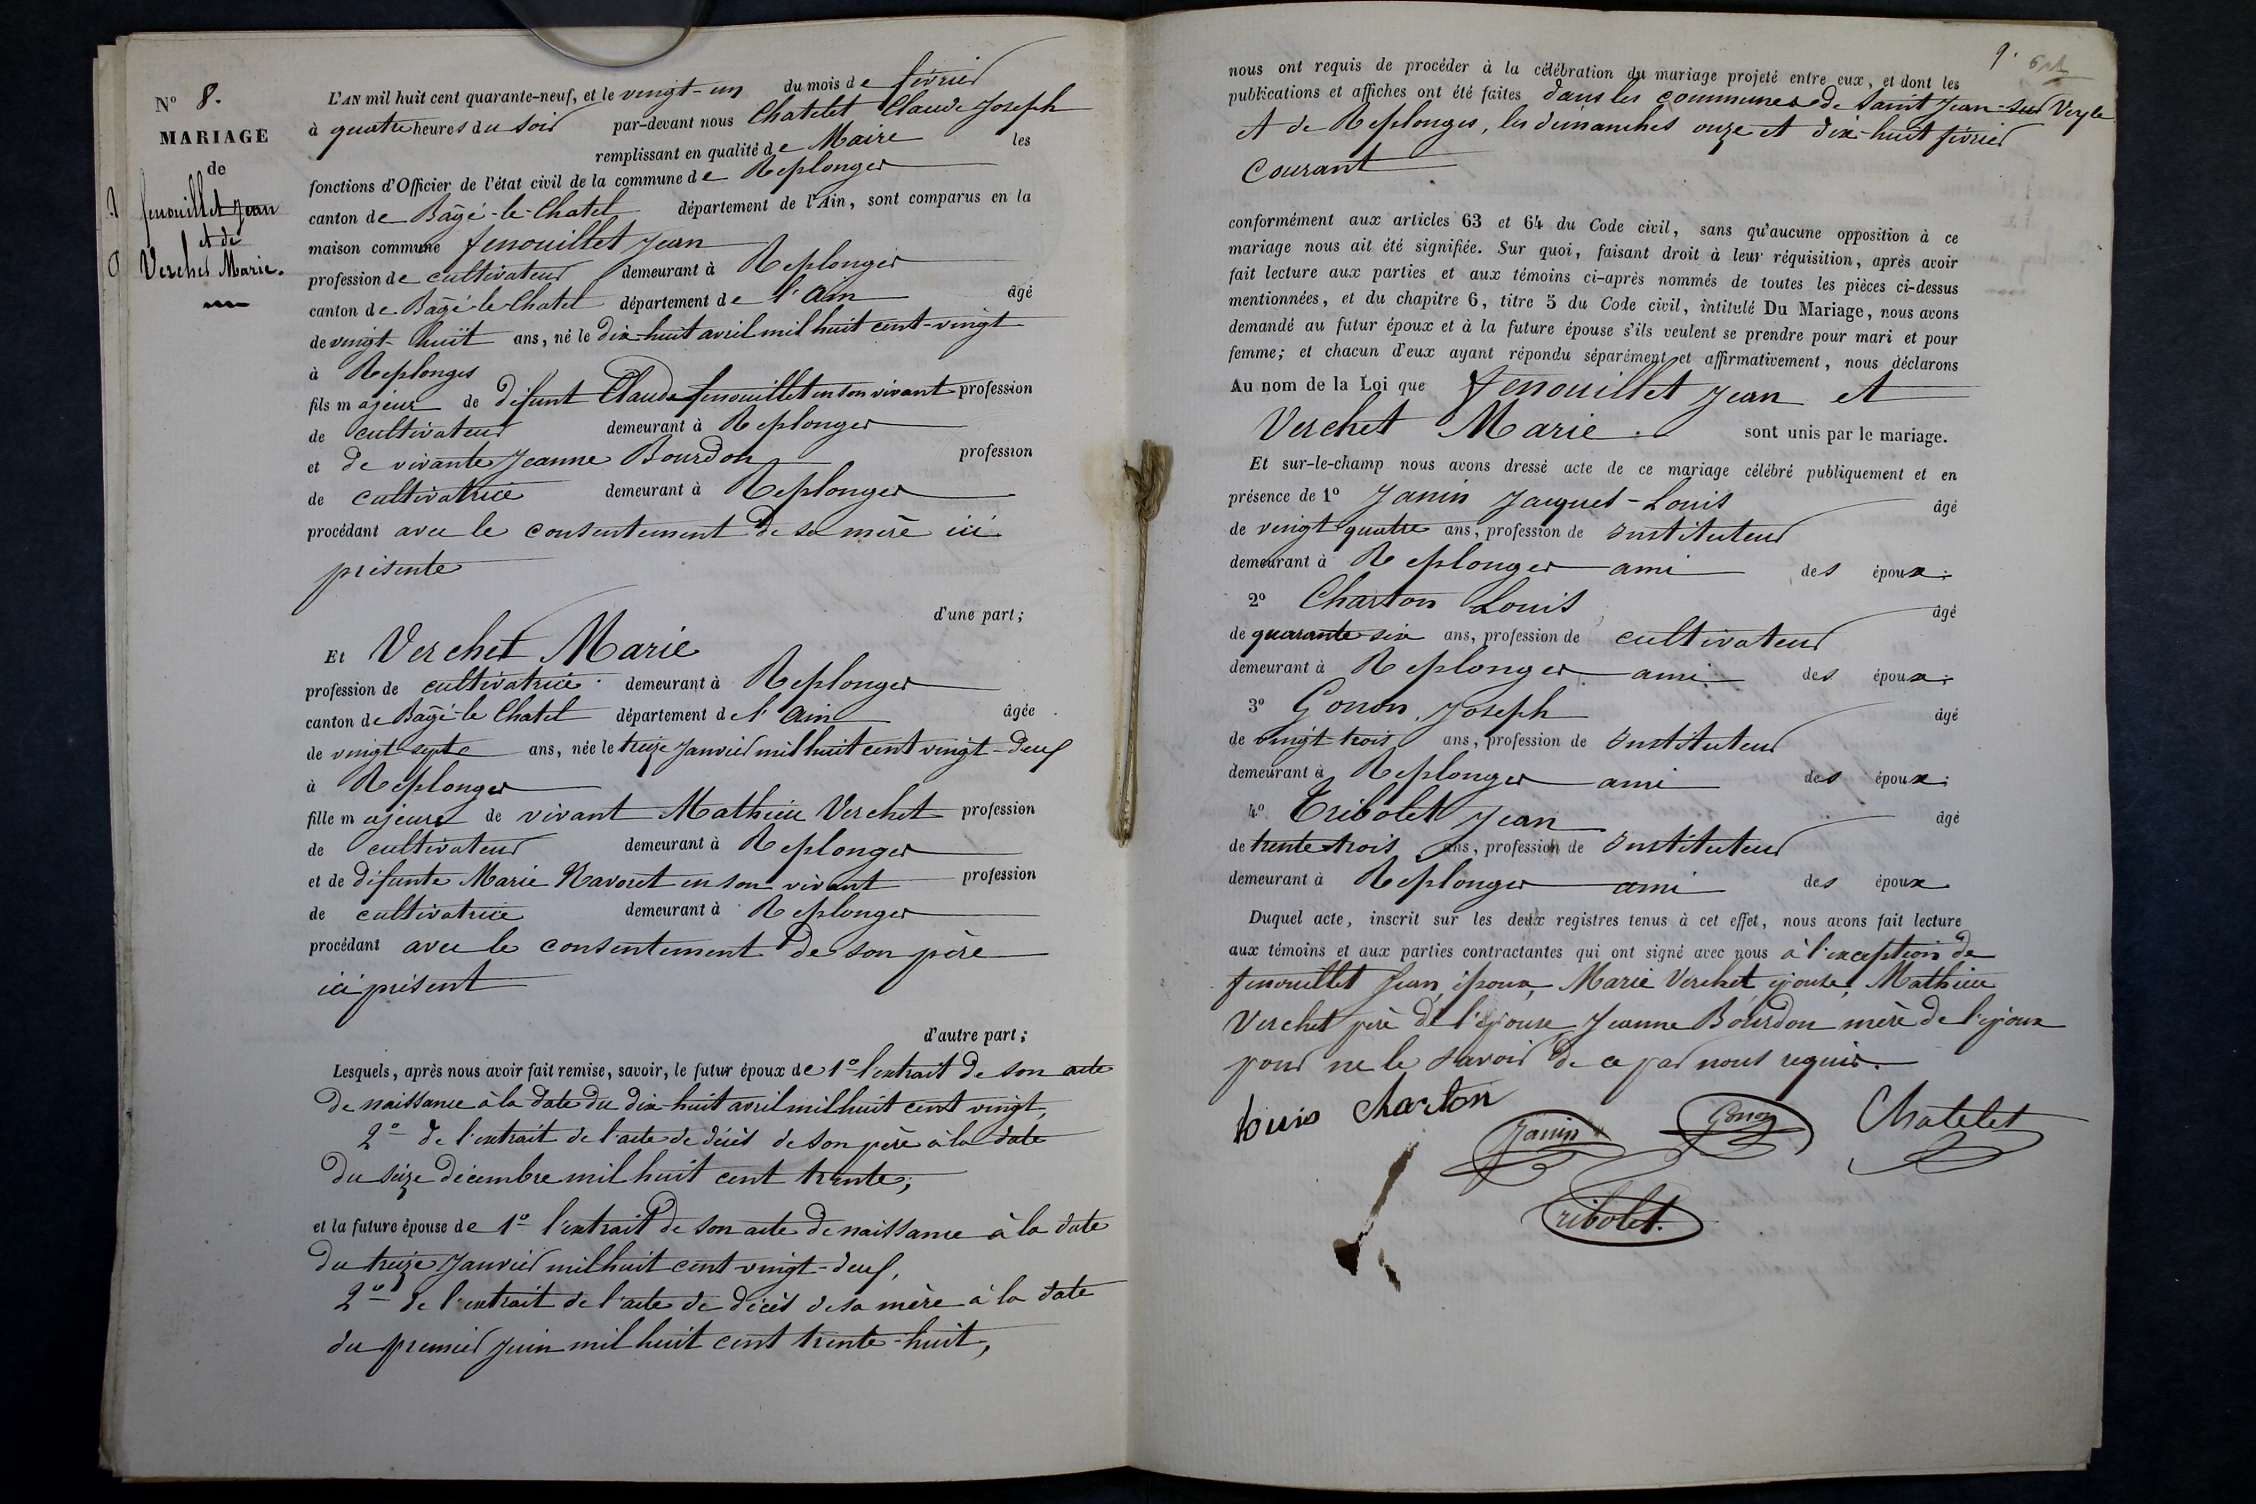 N° 8.
MARIAGE
de
fenouillet Jean
et de
Verchet Marie.
L'AN mil huit cent quarante-neuf, et le vingt-un du mois de février
à quatre heures du soir par-devant nous Chatelet Claude Joseph
remplissant en qualité de Maire les
fonctions d'Officier de l'état civil de la commune de Replonges
canton de Bâgé-le-Chatel département de l'Ain, sont comparus en la
maison commune fenouillet Jean
profession de cultivateur demeurant à Replonges
canton de Bâgé-le-Chatel département de l'Ain âgé
de vingt-huit ans, né le dix-huit avril mil huit cent-vingt
à Replonges
fils majeur de défunt Claude fenouillet en son vivant profession
de cultivateur demeurant à Replonges
et de vivante Jeanne Bourdon profession
de cultivatrice demeurant à Replonges
procédant avec le consentement de sa mère ici
présente
d'une part;
Et Verchet Marie
profession de cultivatrice demeurant à Replonges
canton de Bâgé-le Chatel département de l'Ain âgée
de vingt-sept ans, née le treize Janvier mil huit cent vingt-deux
à Replonges
fille majeure de vivant Mathieu Verchet profession
de cultivateur demeurant à Replonges
et de défunte Marie Navoret en son vivant profession
de cultivatrice demeurant à Replonges
procédant avec le consentement de son père
ici présent
d'autre part;
Lesquels, après nous avoir fait remise, savoir, le futur époux de 1° l'extrait de son acte
de naissance à la date du dix-huit avril mil huit cent vingt,
2° de l'extrait de l'acte de décès de son père à la date
du seize décembre mil huit cent trente;
et la future épouse de 1° l'extrait de son acte de naissance à la date
du treize Janvier mil huit cent vingt-deux,
2° de l'extrait de l'acte de décès de sa mère à la date
du premier juin mil huit cent trente-huit,
9.
nous ont requis de procéder à la célébration du mariage projeté entre eux, et dont les
publications et affiches ont été faites dans les communes de Saint Jean-sur Veyle
et de Replonges, les dimanches onze et dix-huit février
courant
conformément aux articles 63 et 64 du Code civil, sans qu'aucune opposition à ce
mariage nous ait été signifiée. Sur quoi, faisant droit à leur réquisition, après avoir
fait lecture aux parties et aux témoins ci-après nommés de toutes les pièces ci-dessus
mentionnées, et du chapitre 6, titre 5 du Code civil, intitulé Du Mariage, nous avons
demandé au futur époux et à la future épouse s'ils veulent se prendre pour mari et pour
femme; et chacun d'eux ayant répondu séparément et affirmativement, nous déclarons
Au nom de la Loi que fenouillet Jean et
Verchet Marie sont unis par le mariage.
Et sur-le-champ nous avons dressé acte de ce mariage célébré publiquement et en
présence de 1° Janin Jacques-Louis âgé
de vingt quatre ans, profession de Instituteur
demeurant à Replonges ami des époux;
2° Charton Louis âgé
de quarante-six ans, profession de cultivateur
demeurant à Replonges ami des époux;
3° Gonon Joseph âgé
de vingt-trois ans, profession de Instituteur
demeurant à Replonges ami des époux;
4° Tribolet Jean âgé
de trente-trois ans, profession de Instituteur
demeurant à Replonges ami des époux
Duquel acte, inscrit sur les deux registres tenus à cet effet, nous avons fait lecture
aux témoins et aux parties contractantes qui ont signé avec nous à l'exception de
fenouillet Jean, époux, Marie Verchet épouse, Mathieu
Verchet père de l'épouse Jeanne Bourdon mère de l'époux
pour ne le savoir de ce par nous requis.
Louis Charton Janin Gonon Chatelet
Tribolet.